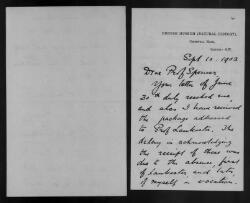 BRITISH MUSEUM (NATURAL HISTORY),
CROMWELL ROAD,
LONDON S.W.
Sept 10. 1902
Dear Prof Spencer
Your letter of June
30th duly reached me
and also I have received
the package addressed
to Prof Lankester. The
delay in acknowledging
the receipt of these was
due to the absence, first
of Lankester and later,
of myself on vacation.